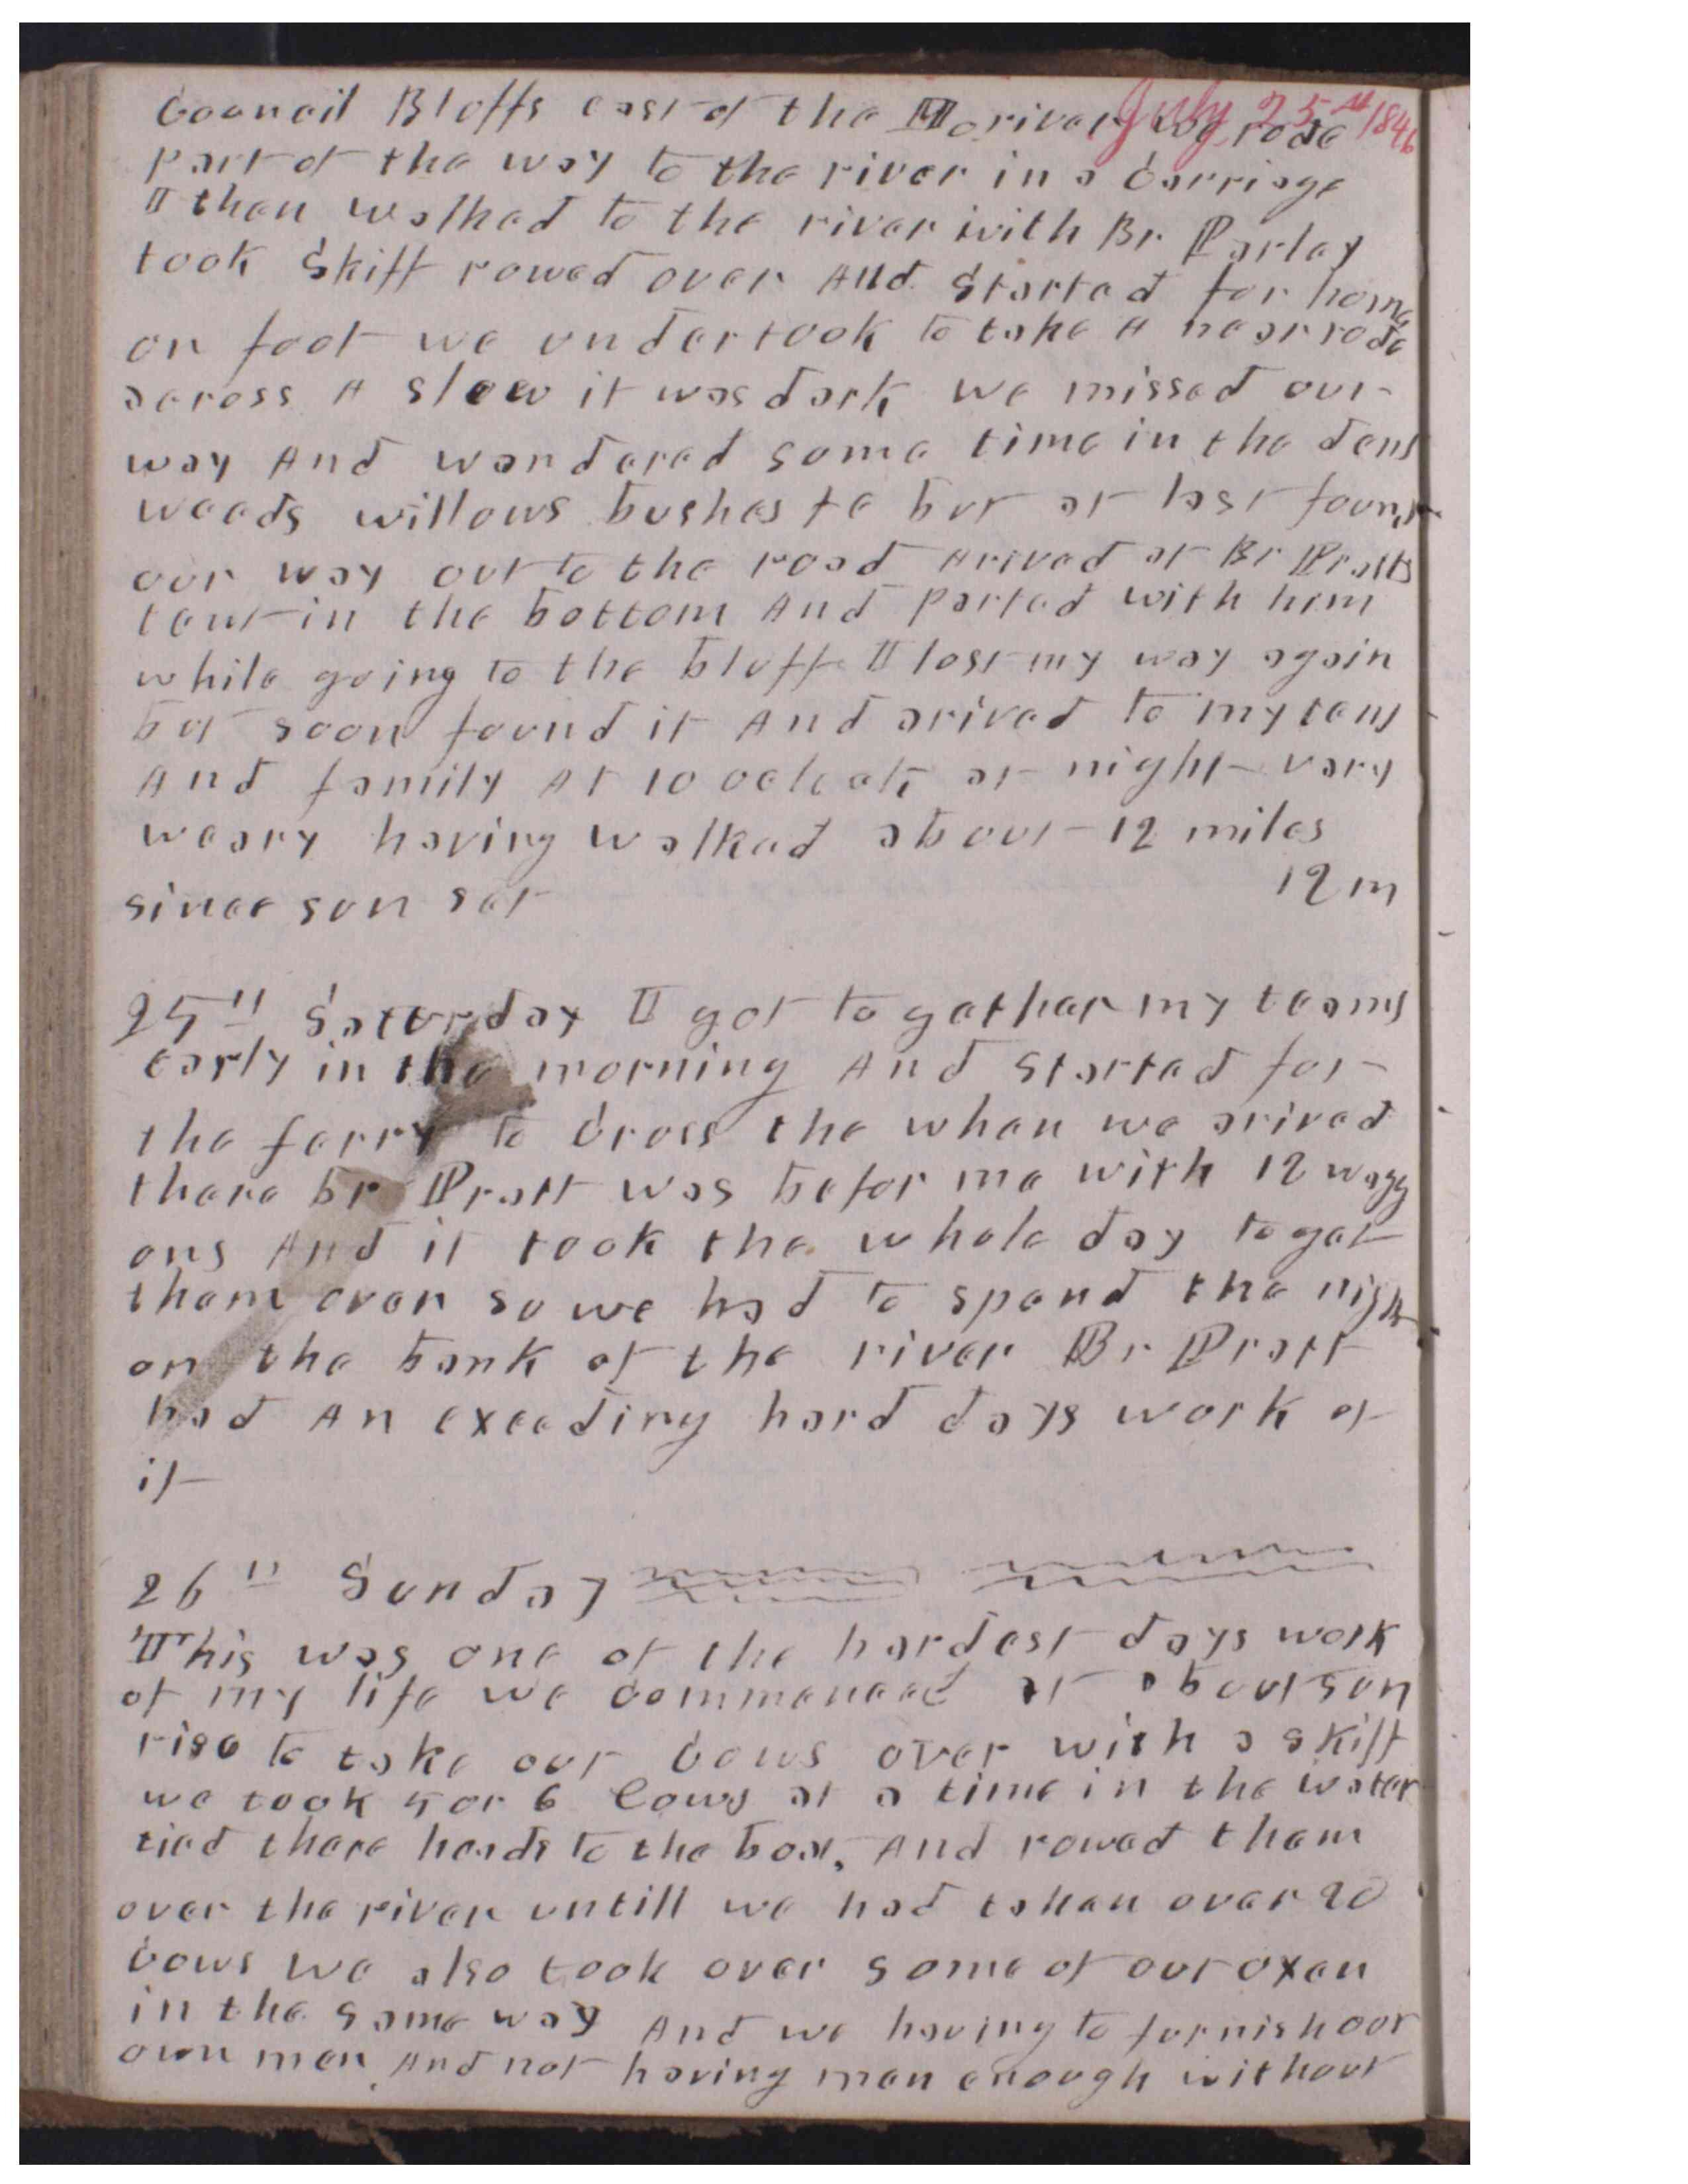 July 25th 1846
Council Bluffs east of the Mo river we rode
part of the way to the river in a Carriage
I then walked to the river with Br Parley
took Skiff rowed over And Started for home
on foot we undertook to take A near rode
across A slew it was dark we missed our
way And wandered some time in the dens
weeds willows bushes &c but at last found
our way out to the road Arived at Br Pratts
tent in the bottom And parted with him
while going to the bluff I lost my way again
but soon found it And arived to my tent
And family At 10 oclock at night very
weary having walked about 12 miles
since sun set 12 m
25th Saturday I got together my teams
early in the morning And Started for
the ferry to Cross the when we arived
there br Pratt was befor me with 12 wagg
ons And it took the whole day to get
them over so we had to spend the night
on the bank of the river Br Pratt
had An exeeding hard days work of
it
26th Sunday
This was one of the hardest days work
of my life we Commenced at about sun
rise to take our Cows over with a skiff
we took 5 or 6 Cows at a time in the water
tied there heads to the boat, And rowed them
over the river untill we had taken over 20
Cows we also took over some of our oxen
in the same way And we having to furnish our
own men And not having men enough without